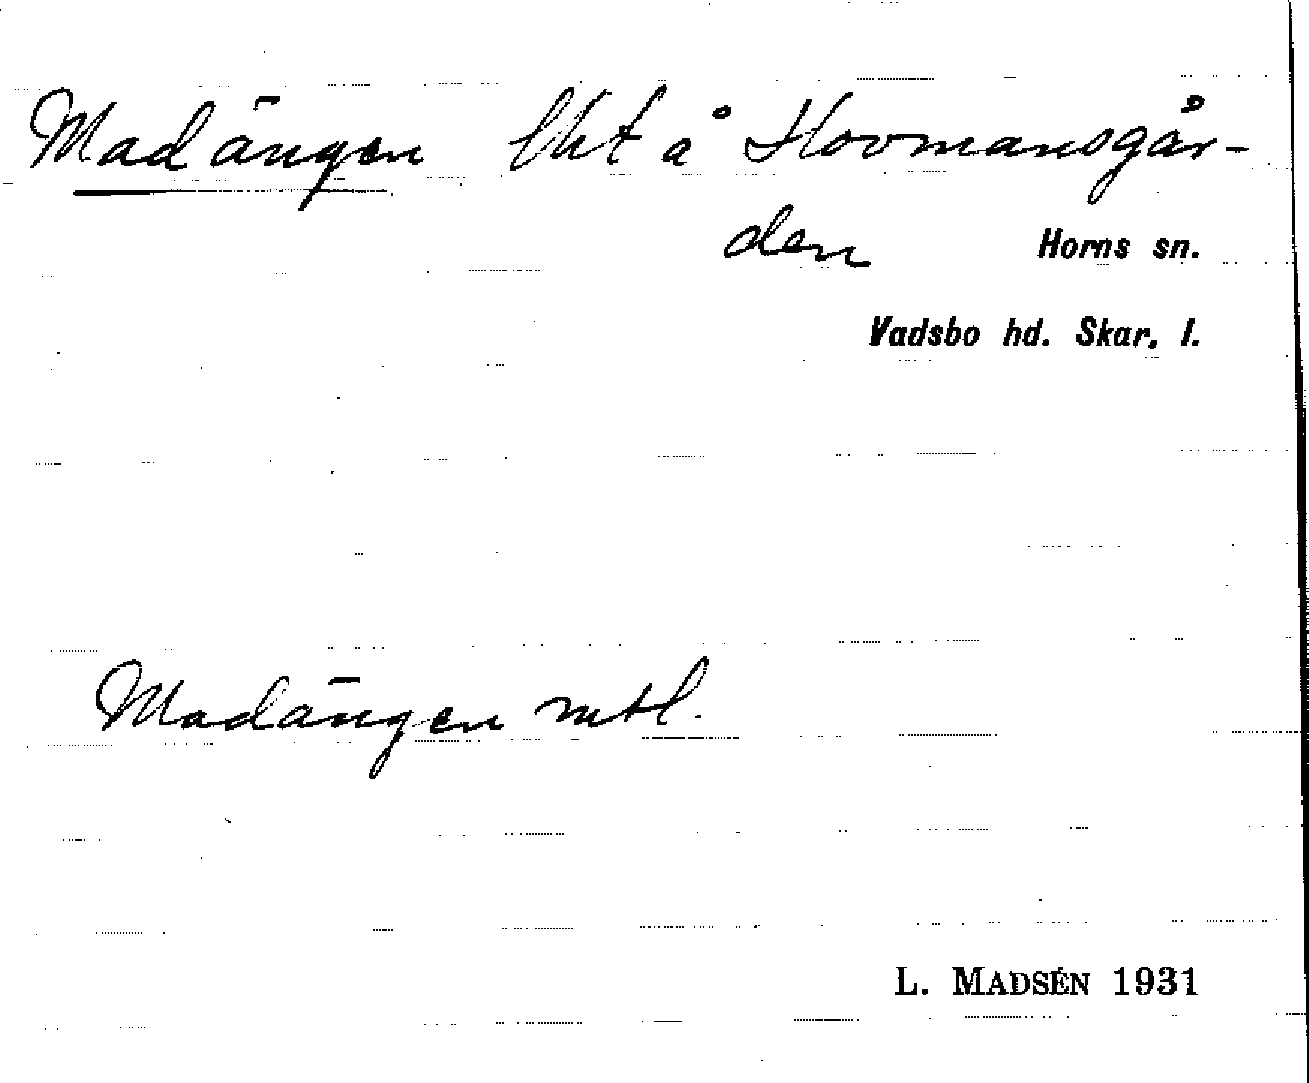 Madängen lht å Hovmansgår-
den
Horns sn.
Vadsbo hd. Skar. l.
Madängen mtl.
L. MADSÉN 1931